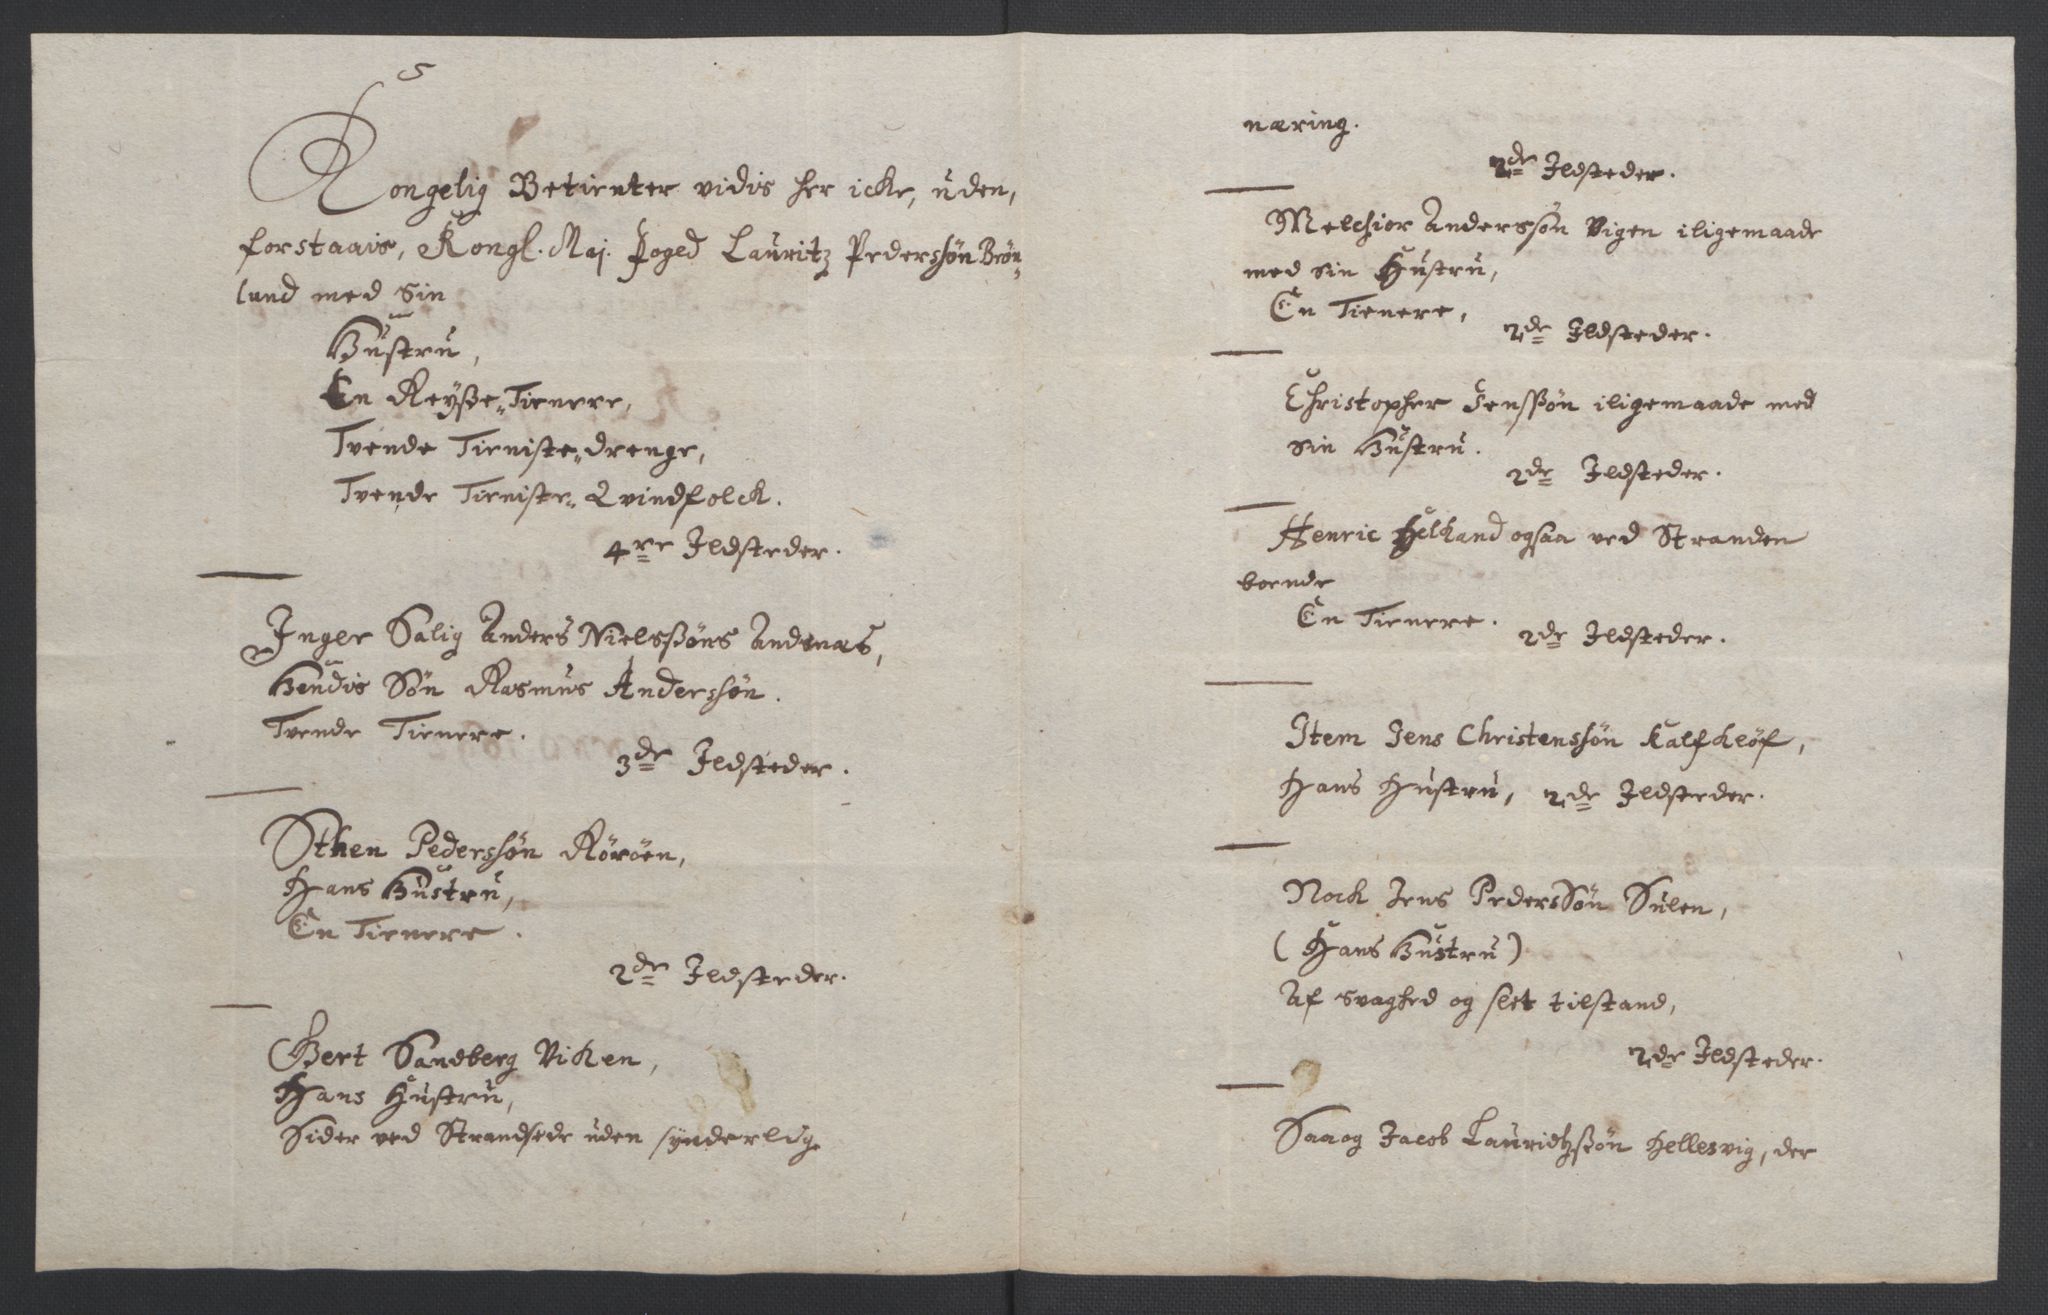 Kongelig Betienter vidis her icke, uden,
forstaais, Kongl. Maj. Foged Lauritz Pedersøn Brøn-
lund med sin
Hustru,
En Reysse-Tienere,
Tvende Tieniste-drenge,
Tvende Tieniste-Qvindfolck.
4re Ildsteder.
Inger Salig Anders Nielssøns Andenæs,
Hendis Søn Rasmus Anderssøn.
Tvende Tienere.
3de Ildsteder.
Sthen Pederssøn Rørøen,
Hans Hustru,
En Tienere.
2de Ildsteder.
Gert Sandberg Viken,
Hans Hustru,
Sider ved Strandsede uden synderlig
næring.
2de Ildsteder.
Melchior Anderssøn Vigen iligemaade
med sin Hustru,
En Tienere,
2de Ildsteder.
Christopher Jenssøn iligemaade med
sin Hustru.
2de Ildsteder.
Henric ogsaa ved Stranden
boende
En Tienere.
2de Ildsteder.
Item Jens Christenssøn Kalfkløf,
Hans Hustru, 2de Ildsteder.
Nock Jens PedersSøn Sulen,
(Hans Hustru)
Af svaghed og slet tilstand,
2de Ildsteder.
Saa og Jacob Lauridtzssøn Hellesvig, der